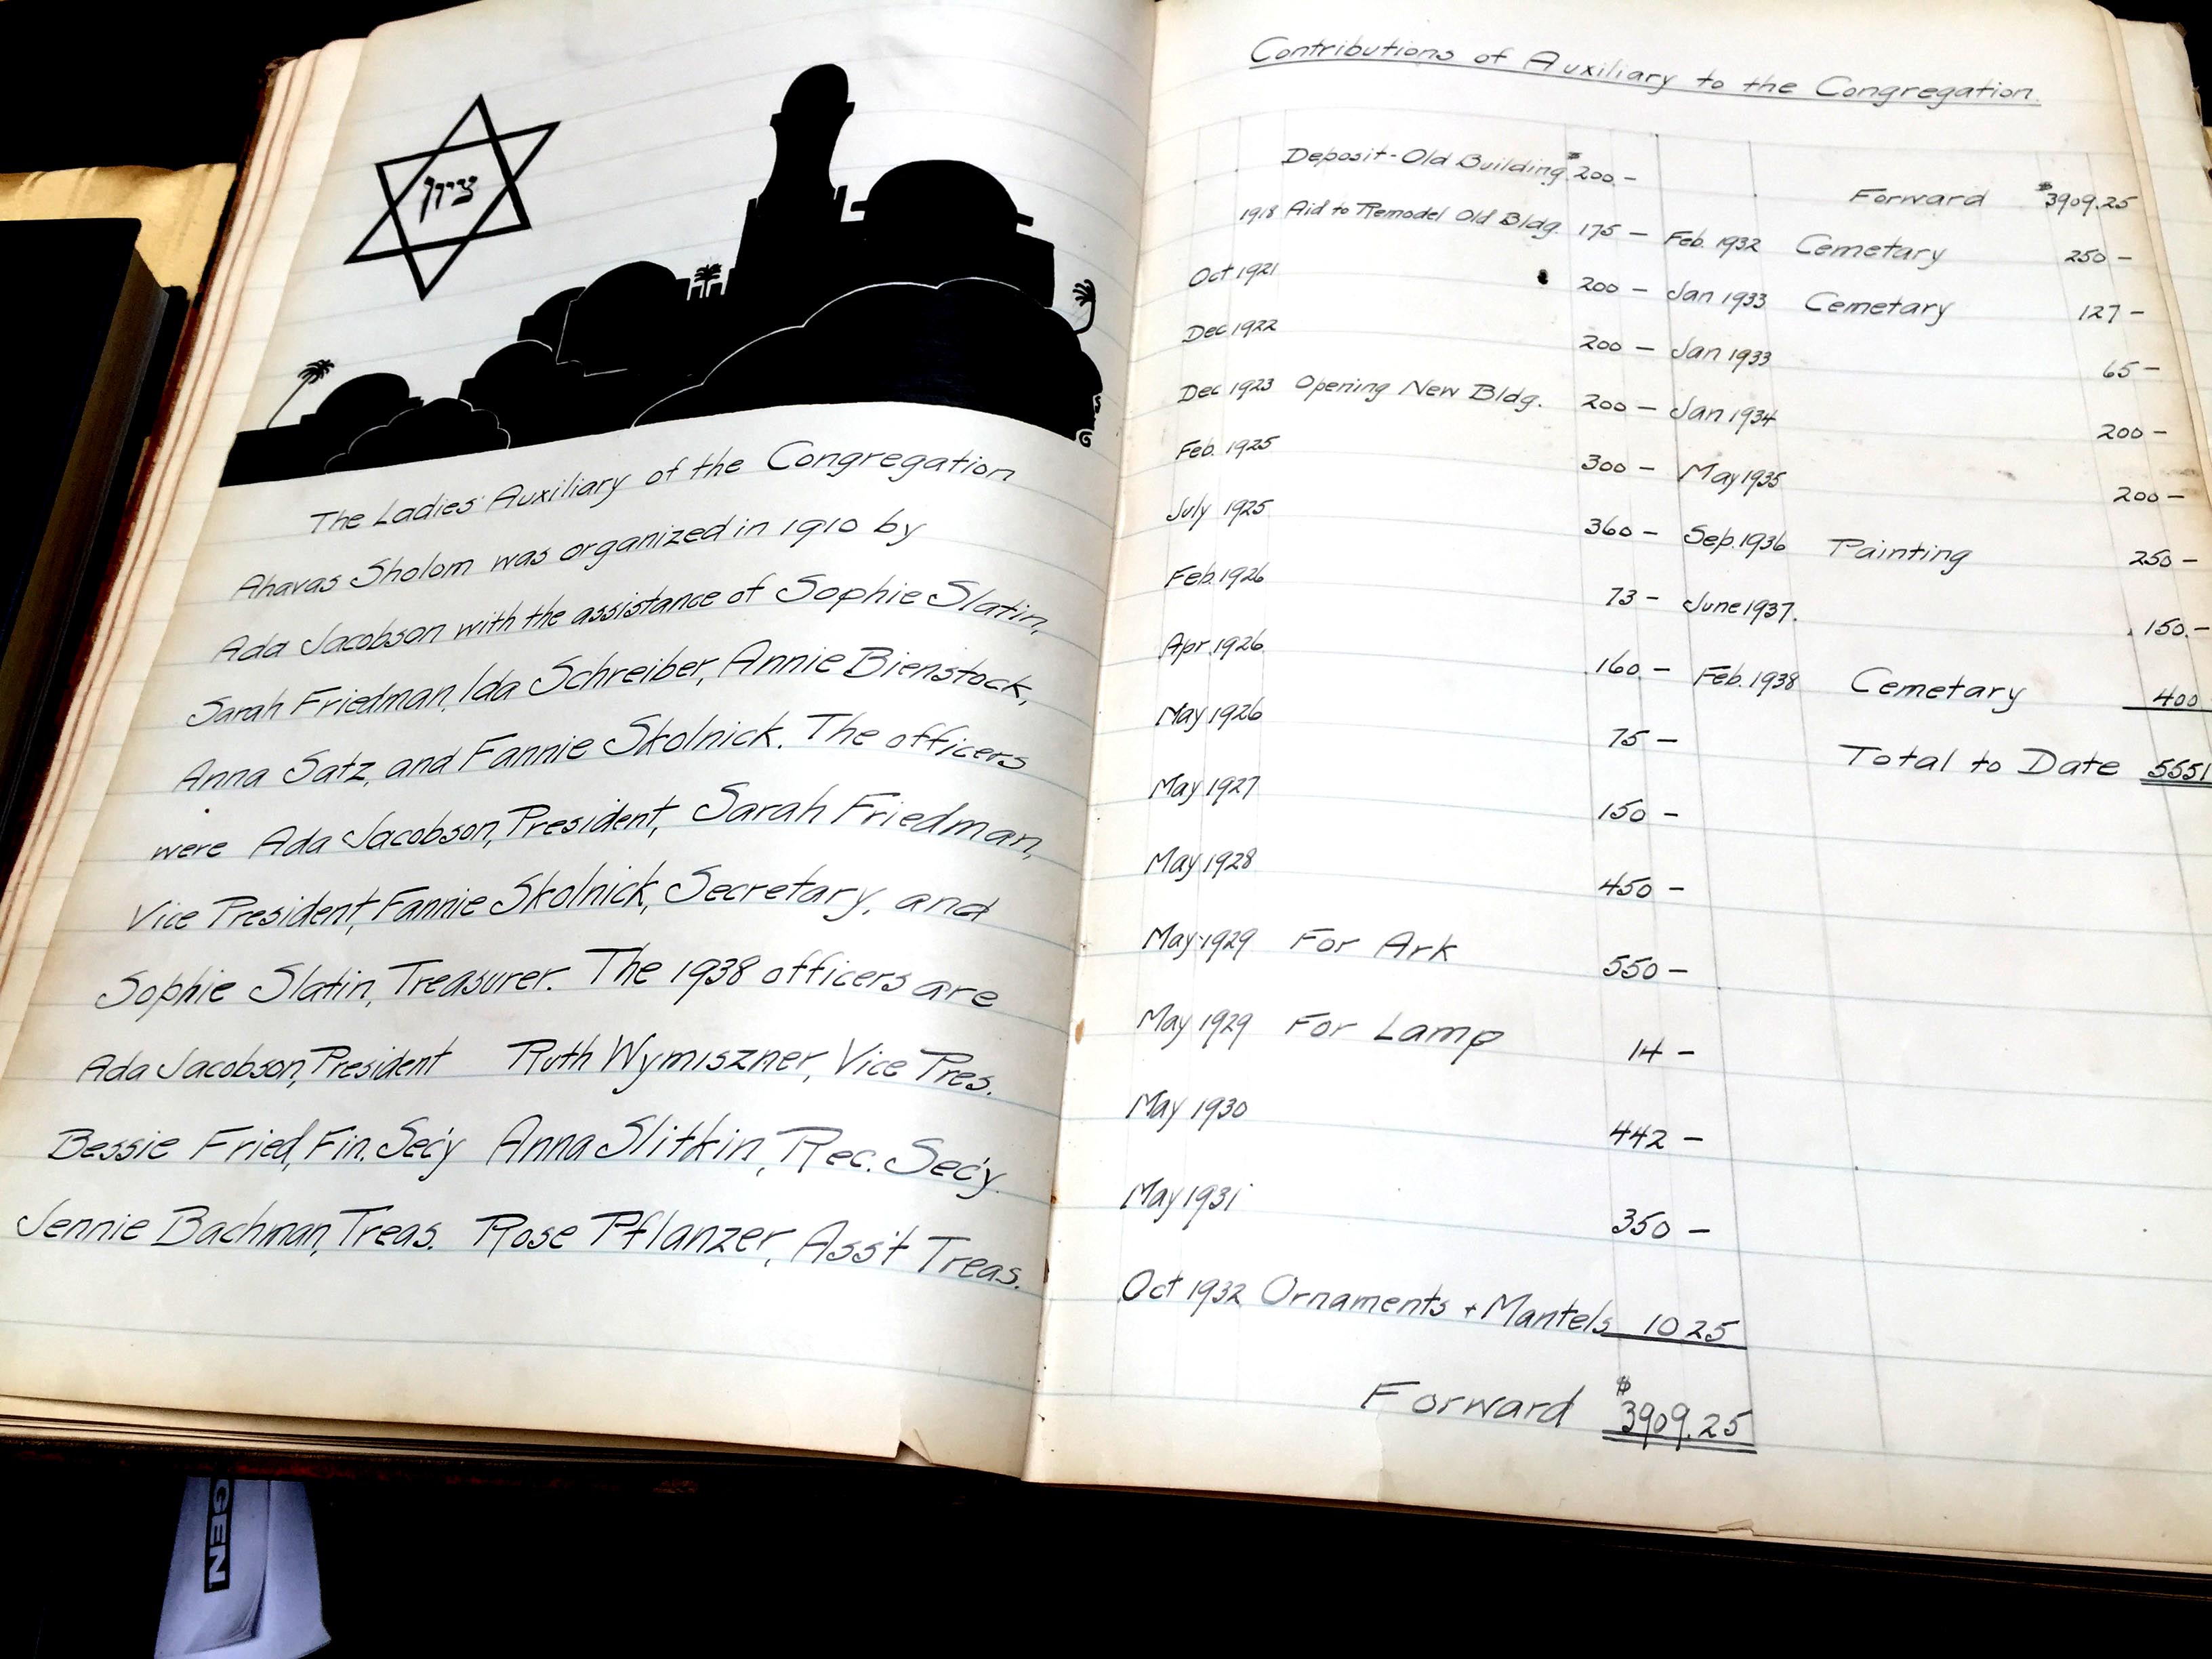 ציון
The Ladies' Auxiliary of the Congregation
Ahavas Sholom was organized in 1910 by
Ada Jacobson with the assistance of Sophie Slatin,
Sarah Friedman, Ida Schreiber, Annie Bienstock,
Anna Satz, and Fannie Skolnick. The officers
were Ada Jacobson, President, Sarah Friedman,
Vice President, Fannie Skolnick, Secretary, and
Sophie Slatin, Treasurer. The 1938 officers are
Ada Jacobson, President Ruth Wymiszner, Vice Pres.
Bessie Fried, Fin. Sec'y Anna Slitkin, Rec. Sec'y.
Jennie Bachman, Treas. Rose Pflanzer, Ass't Treas.
Contributions of Auxiliary to the Congregation.
Deposit-Old Building $200.-
1918 Aid to Remodel Old Bldg. 175 -
Oct 1921 200 -
Dec 1922 200 -
Dec 1923 Opening New Bldg. 200 -
Feb. 1925 300 -
July 1925 360 -
Feb. 1926 73 -
Apr. 1926 160. -
May 1926 75 -
May 1927 150 -
May 1928 450 -
May 1929 For Ark 550 -
May 1929 For Lamp 14 -
May 1930 442 -
May 1931 350 -
Oct 1932 Ornaments + Mantels 10 25
Forward $3909.25
Forward $3909.25
Feb. 1932 Cemetary 250 -
Jan 1933 Cemetary 127 -
Jan 1933 65 -
Jan 1934 200 -
May 1935 200 -
Sep. 1936 Painting 250 -
June 1937. 150. -
Feb. 1938 Cemetary 400
Total to Date 5551
GEN